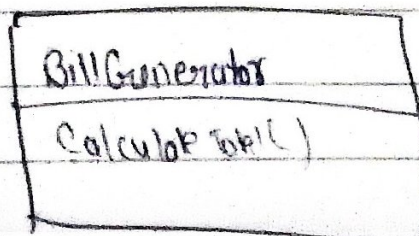 BillGenerator
Calculate Total()